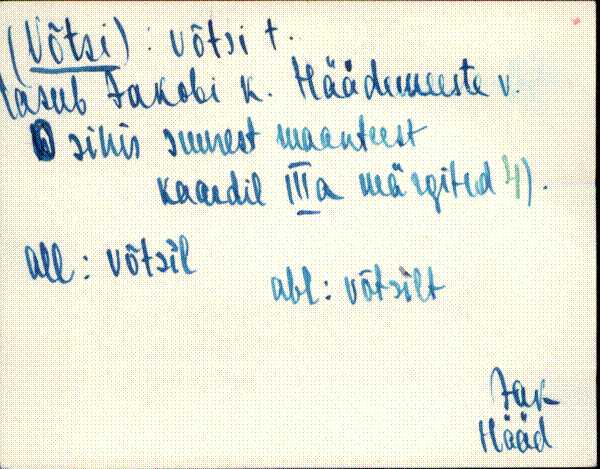 (Võtsi) : võtsi t.
(asub Jakobi k. Häädemeeste v.
O sihis suurest maanteest
kaardil IIIa märgitud 4).
all : võtsil
abl : võtsilt
Jak
Hääd